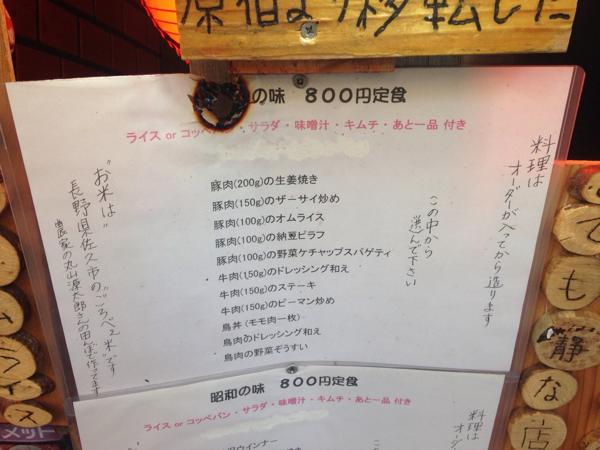 原宿より移転した
の味 800円定食
ライス or コッペパン・サラダ・味噌汁・キムチ・あと一品 付き
料理は
オーダーが入てから造ります
この中から
選んで下さい
豚肉(200g)の生姜焼き
豚肉(150g)のザーサイ炒め
豚肉(100g)のオムライス
豚肉(100g)の納豆ピラフ
豚肉(100g)の野菜ケチャップスパゲティ
牛肉(150g)のドレッシング和え
牛肉(150g)のステーキ
牛肉(150g)のピーマン炒め
鳥丼(モモ肉一枚)
鳥肉のドレッシング和え
鳥肉の野菜ぞうすい
"お米は"
長野県佐久市の"ごろべえ米"です
農家の丸山源太郎さんの田んぼで作ってます
昭和の味 800円定食
ライス or コッペパン・サラダ・味噌汁・キムチ・あと一品 付き
料理は
オーダ
こ
ウインナー
でも静な店
ムライス
メット